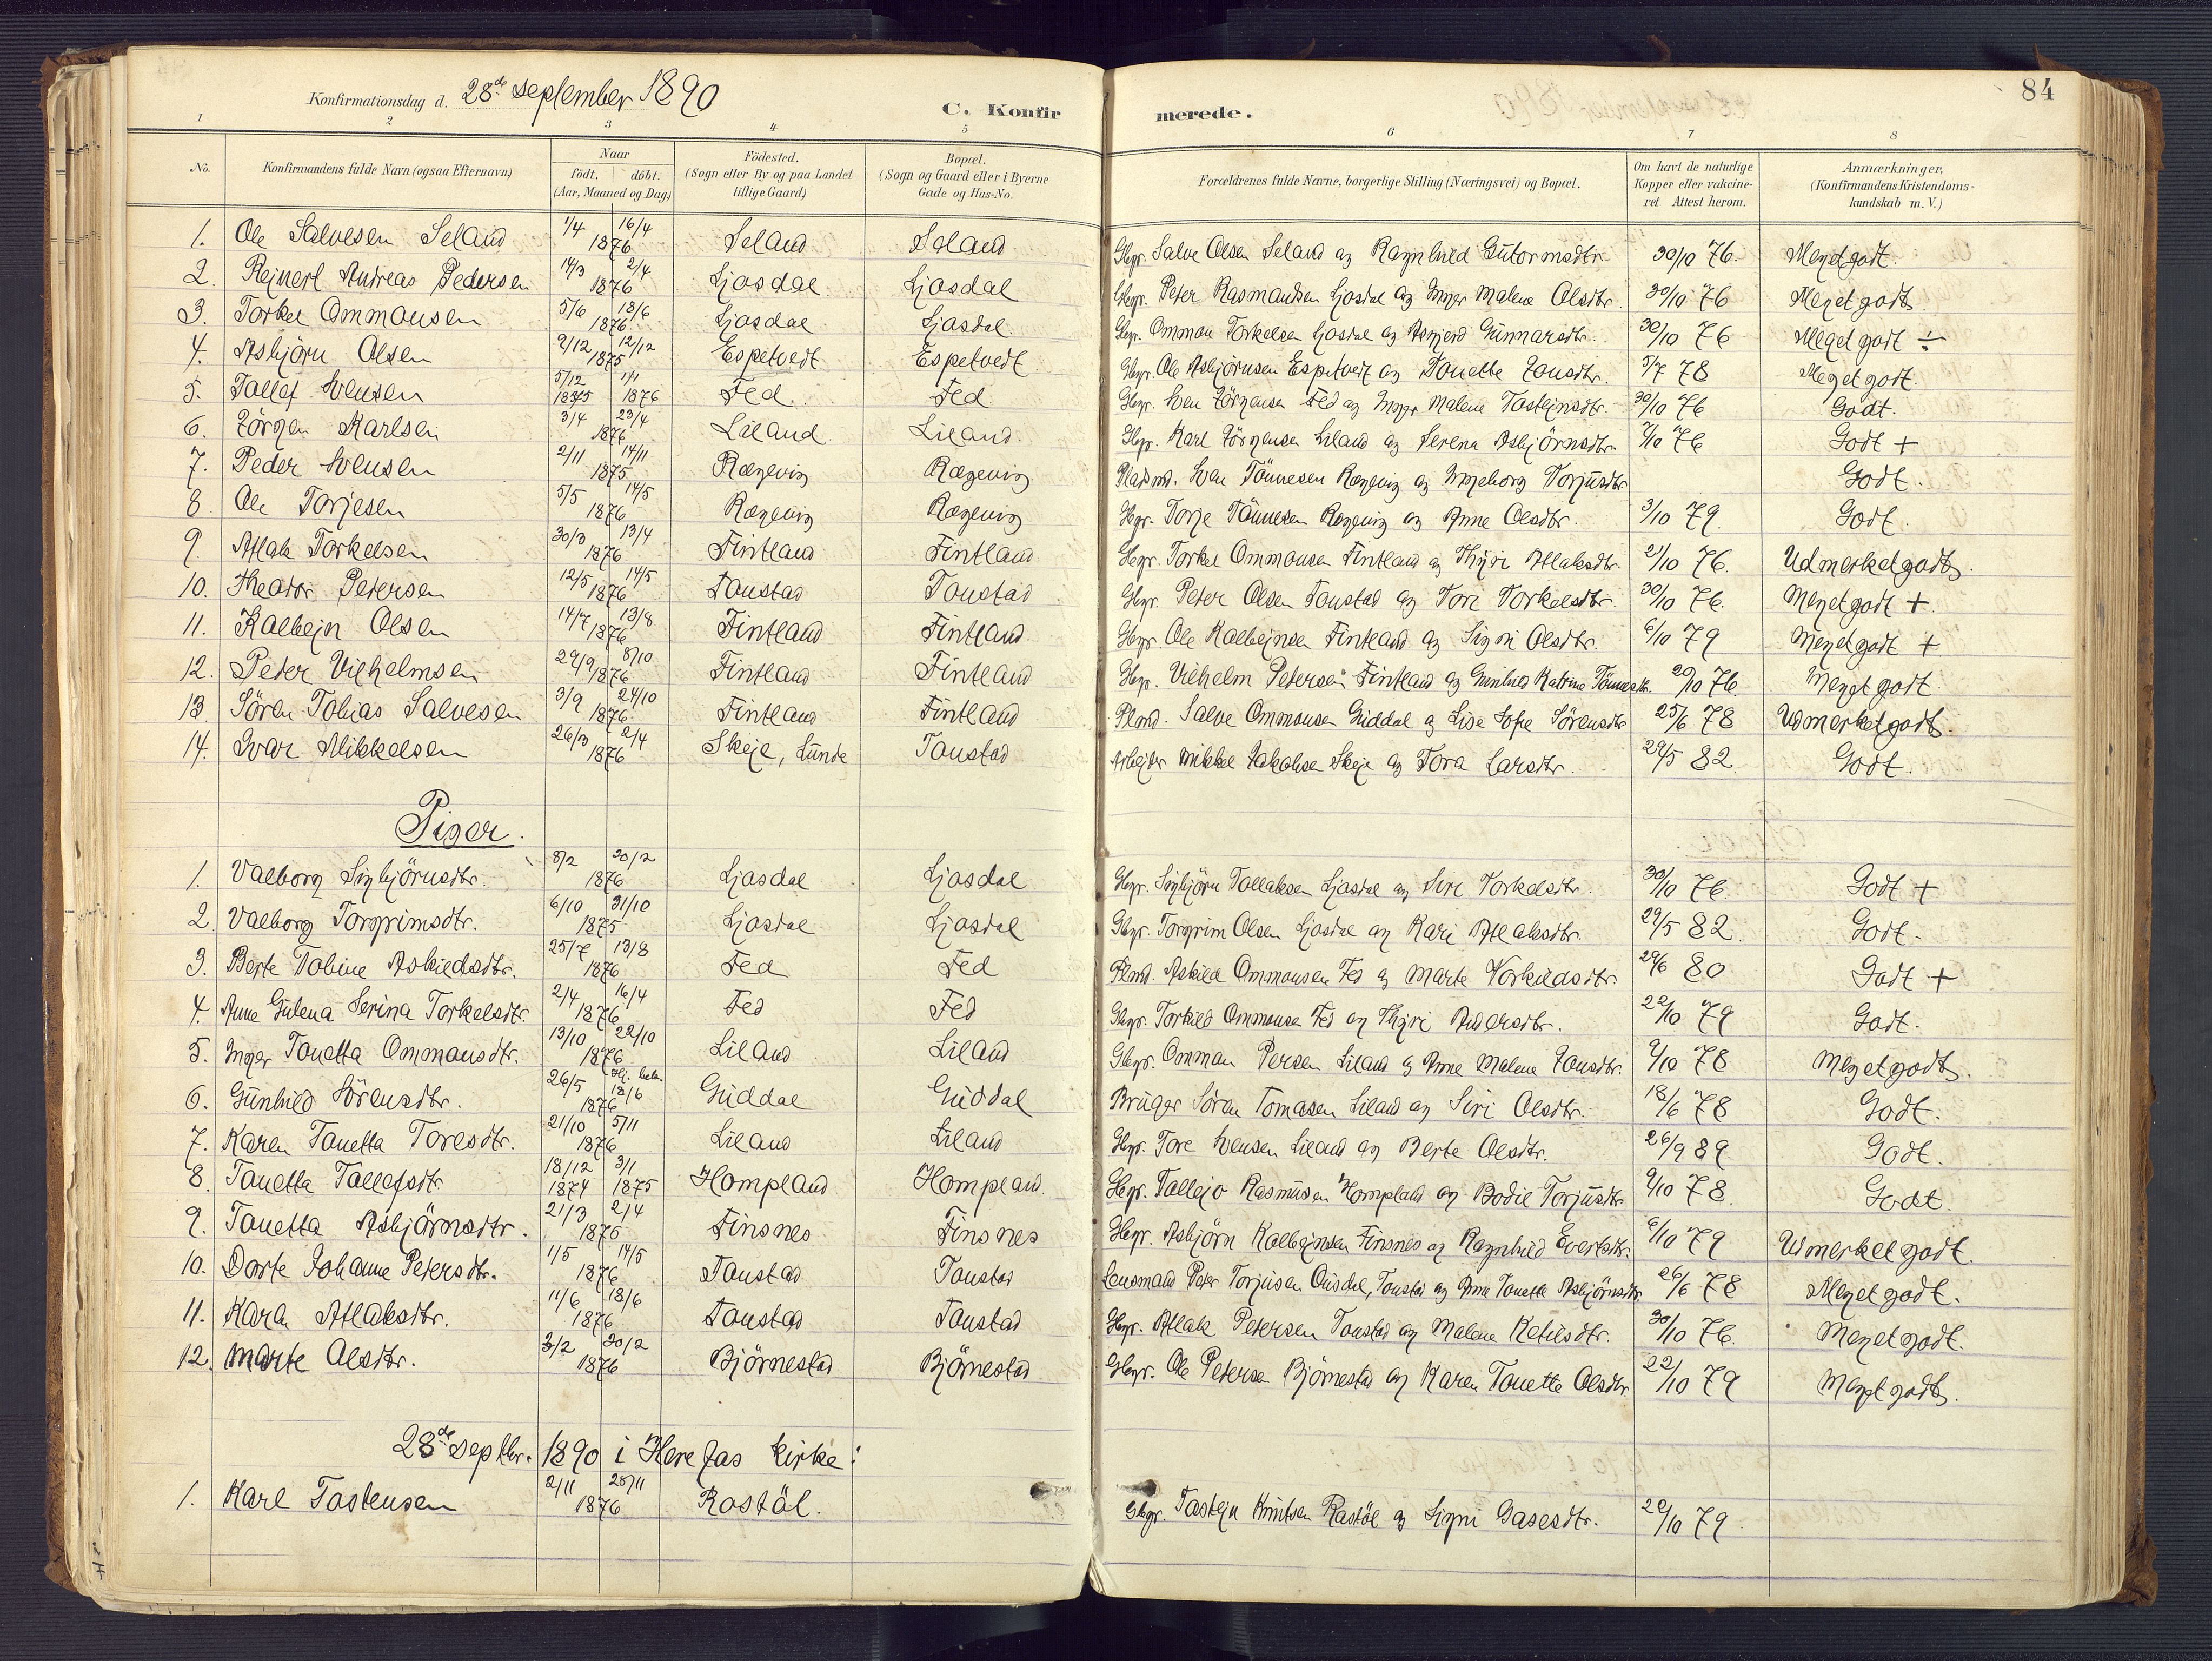 Konfirmationsdag d. 28de september 1890
C. Konfirmerede.
84
1 2 3 4 5 6 7 8
No. Konfirmandens fulde Navn (ogsaa Efternavn) Naar födt. döbt. (Aar, Maaned og Dag) Födested. (Sogn eller By og paa Landet tillige Gaard) Bopæl. (Sogn og Gaard eller i Byerne Gade og Hus-No. Forældrenes fulde Navne, borgerlige Stilling (Næringsvei) og Bopæl. Om havt de naturlige Kopper eller vakcineret. Attest herom. Anmærkninger. (Konfirmandens Kristendomskundskab m. V.)
1. Ole Salvesen Seland 1/4 16/4 1876 Seland Seland Gbgr. Salve Olsen Seland og Ragnhild Gutormsdtr. 30/10 76. Meget godt.
2. Reinert Andreas Pedersen 14/3 2/4 1876 Ljosdal Ljosdal Gbgr. Peter Rasmundsen Ljosdal og Inger Malene Olsdtr. 30/10 76 Meget godt.
3. Torkel Ommonsen 5/6 18/6 1876 Ljosdal Ljosdal Gbgr. Ommon Torkelsen Ljosdal og Gunnarsdtr. 30/10 76 Meget godt ÷
4. Asbjörn Olsen 9/12 12/12 1875 Espetvedt Espetvedt Gbgr. Ole Asbjörnsen Espetvedt og Tonette Jonsdtr. 5/7 78 Meget godt.
5. Tallef Svensen 5/12 1875 1/1 1876 Fed Fed Gbgr. Sven Jörgensen Fed og Inger Malene Tostejnsdtr. 30/10 76 Godt.
6. Jörgen Karlsen 3/4 23/4 1876 Liland Liland Gbgr. Karl Jörgensen Liland og Serena Asbjörnsdtr. 76 Godt +
7. Peder Svensen 2/11 14/11 1875 Rægevig Rægevig Pladsmd. Sven Tönnesen Rægevig og Ingeborg Torjusdtr. Godt.
8. Ole Torjesen 5/5 14/5 1876 Rægevig Rægevig Gbgr. Torje Tönnesen Rægevig og Anne Olsdtr. 3/10 79. Godt.
9. Aflak Torkelsen 30/3 13/4 1876 Fintland Fintland Gbgr. Torkel Ommonsen Fintland og Thyri Aflaksdtr. 76. Udmerket godt.
10. Theodor Petersen 12/5 14/5 1876 Tonstad Tonstad Gbgr. Peter Olsen Tonstad og Tori Torkelsdtr. 30/10 76. Meget godt +.
11. Kalbejn Olsen 14/7 13/8 1876 Fintland Fintland Gbgr. Ole Kalbejnsen Fintland og Signi Olsdtr. 6/10 79 Meget godt +
12. Peder Vilhelmsen 29/9 8/10 1876 Fintland Fintland Gbgr. Vilhelm Petersen Fintland og Gunhild Katrine Tönnesdtr. 76. Meget godt.
13. Sören Tobias Salvesen 3/9 24/10 1876 Fintland Fintland Plmd. Salve Ommonsen Guddal og Lise Sofie Sörensdtr. 25/6 78 Udmerket godt.
14. Ivar Mikkelsen 26/3 2/4 1876 Skeje, Lunde Tonstad Arbejder Mikkel Jakobsen Skeje og Tora Larsdtr. 29/5 82 Godt.
Piger.
1. Valborg Sigbjörnsdtr. 8/2 20/2 1876 Ljosdal Ljosdal Gbgr. Sigbjörn Tollaksen Ljosdal og Siri Torkelsdtr. 30/10 76. Godt +
2. Valborg Torgrimsdtr. 6/10 31/10 1875 Ljosdal Ljosdal Gbgr. Torgrim Olsen Ljosdal og Kari Aflaksdtr. 29/5 82. Godt.
3. Berte Tobine Askildsdtr. 25/7 13/8 1876 Fed Fed Plmd. Askild Ommonsen Fed og Marte Torkildsdtr. 29/6 80 Godt +
4. Anne Gulena Serina Torkelsdtr. 2/4 16/4 1876 Fed Fed Gbgr. Torkild Ommonsen Fed og Thyri Andersdtr. 22/10 79 Godt.
5. Inger Tonetta Ommonsdtr. 13/10 22/10 1876 Liland Liland Gbgr. Ommon Persen Liland og Anne Malene Jonsdtr. 9/10 78 Meget godt.
6. Gunhild Sörensdtr. 26/5 18/6 1876 Guddal Guddal Bruger Sören Tomasen Liland og Siri Olsdtr. 18/6 78 Godt.
7. Karen Tonetta Toresdtr. 21/10 5/11 1876 Liland Liland Gbgr. Tore Svensen Liland og Berte Olsdtr. 26/9 89 Godt.
8. Tonetta Tallefsdtr. 18/12 1874 3/1 1875 Hompland Hompland Gbgr. Rasmusen Hompland og Bodil Torjusdtr. 9/10 78. Godt.
9. Tonetta Asbjörnsdtr. 21/3 2/4 1876 Finsnes Finsnes Gbgr. Asbjörn Kalbejnsen Finsnes og Ragnhild Evertsdtr. 6/10 79 Udmerket godt.
10. Dorte Johanne Petersdtr. 1/5 14/5 1876 Tonstad Tonstad Lensmand Peter Torjusen Ousdal, Tonstad og Anne Tonette Asbjörnsdtr. 26/6 78 Meget godt.
11. Karen Aflaksdtr. 11/6 18/6 1876 Tonstad Tonstad Gbgr. Aflak Petersen Tonstad og Malene Ketilsdtr. 30/10 76. Meget godt.
12. Marte Olsdtr. 3/2 20/2 1876 Björnestad Björnestad Gbgr. Ole Petersen Björnestad og Karen Tonette Olsdtr. 22/10 79 Meget godt.
28de septbr. 1890 i Herefos kirke:
1. Karl Tostensen 2/11 1876 Rostöl. Gbgr. Tostejn Knutsen Rostöl og Signi Gasesdtr. 79.